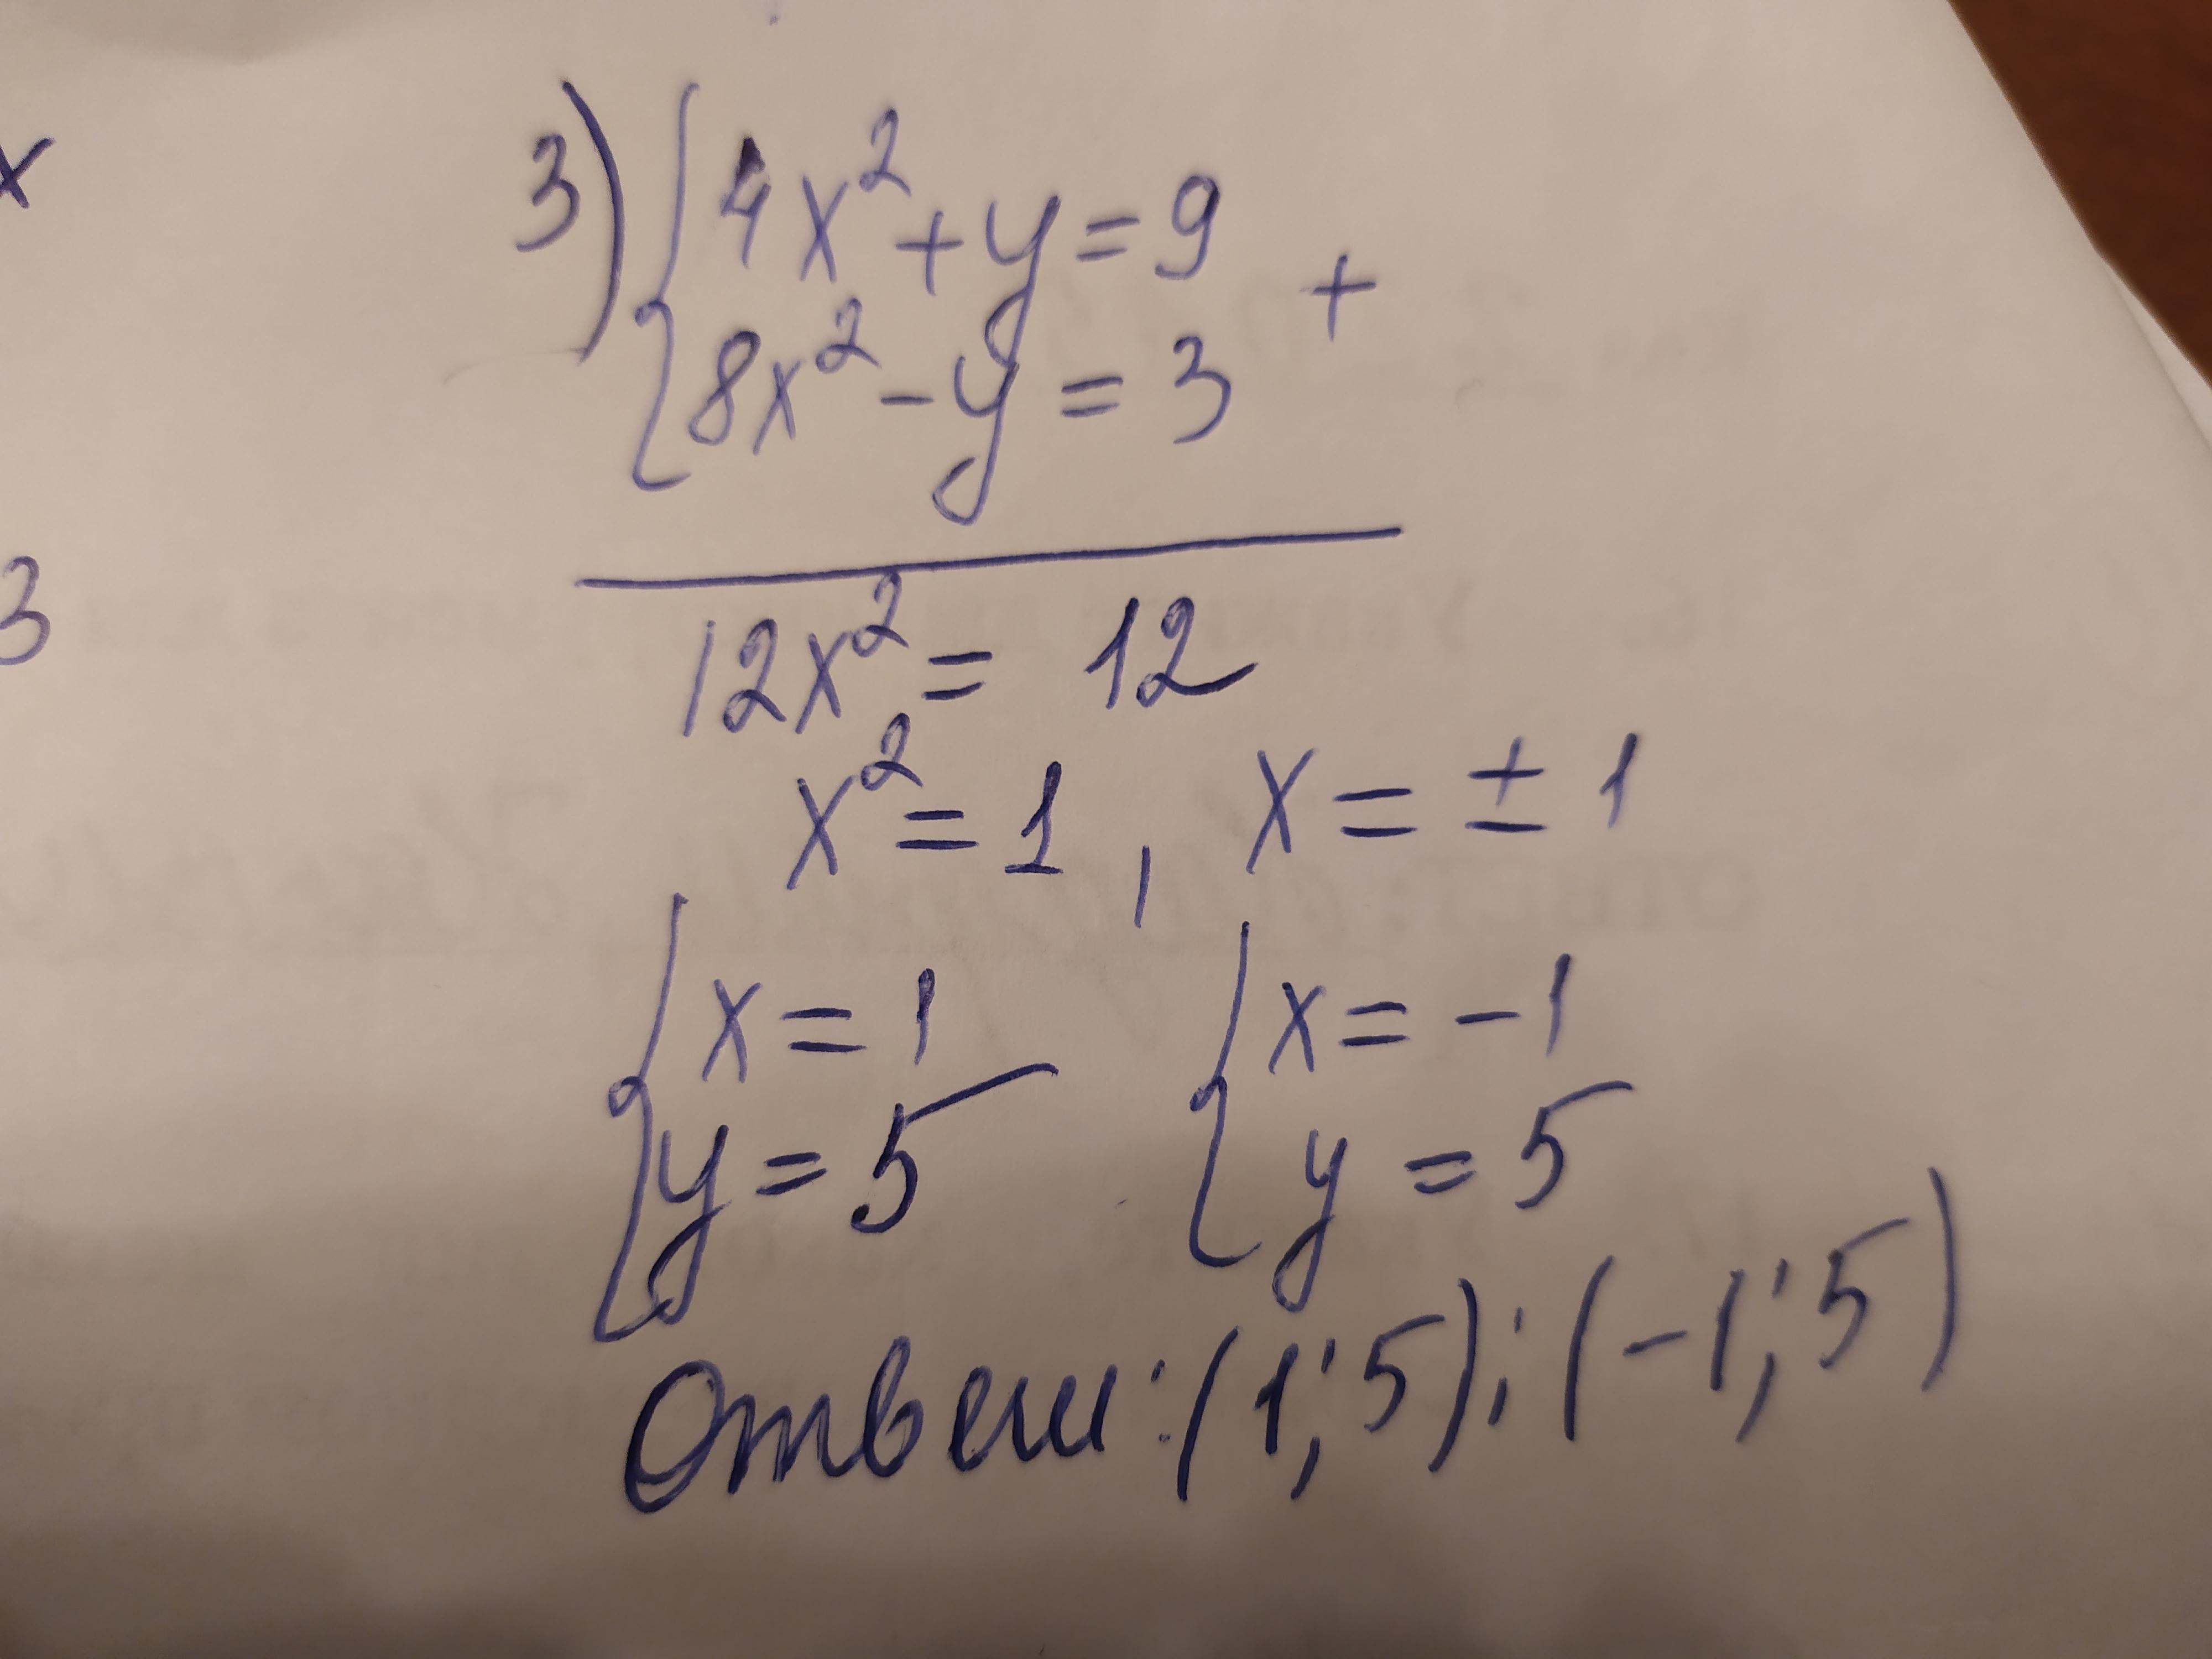 x
3
3) { 4x² + y = 9
8x² - y = 3 +
12x² = 12
x² = 1, x = ± 1
{ x = 1 { x = -1
y = 5 y = 5
Ответ: (1; 5); (-1; 5)